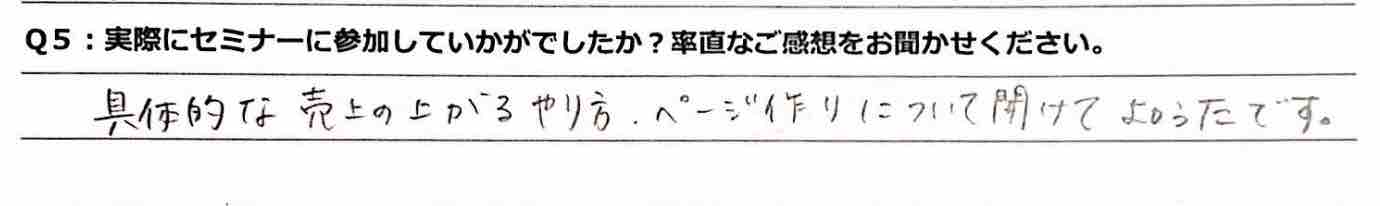 Q5：実際にセミナーに参加していかがでしたか？率直なご感想をお聞かせください。
具体的な売上の上がるやり方、ページ作りについて聞けてよかったです。